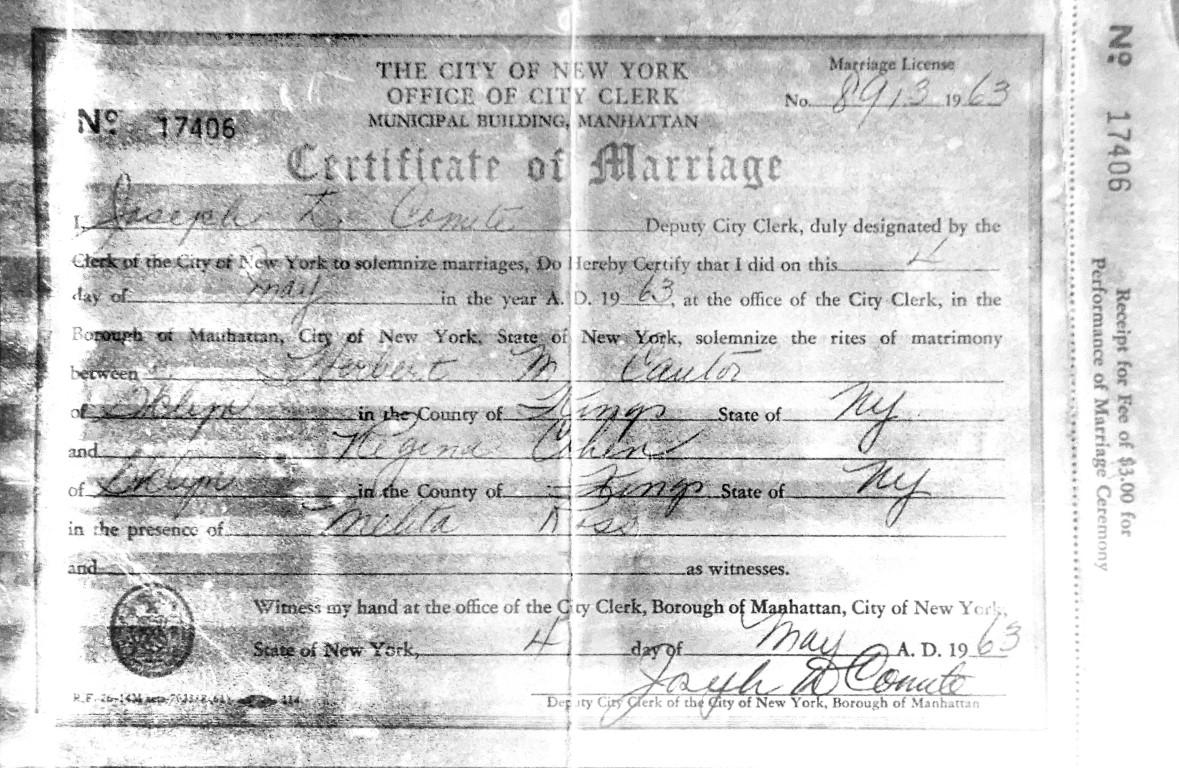 THE CITY OF NEW YORK
OFFICE OF CITY CLERK
MUNICIPAL BUILDING, MANHATTAN
Marriage License
No. 8913 1963
No 17406
Certificate of Marriage
I, Joseph Comite Deputy City Clerk, duly designated by the
Clerk of the City of New York to solemnize marriages, Do Hereby Certify that I did on this 4
day of May in the year A. D. 1963, at the office of the City Clerk, in the
Borough of Manhattan, City of New York, State of New York, solemnize the rites of matrimony
between Herbert M. Cantor
of Bklyn in the County of Kings State of NY
and Regina Cohen
of Bklyn in the County of Kings State of NY
in the presence of Ross
and as witnesses.
Witness my hand at the office of the City Clerk, Borough of Manhattan, City of New York,
State of New York, 4 day of May A. D. 1963
Joseph Comite
Deputy City Clerk of the City of New York, Borough of Manhattan
No 17406
Receipt for Fee of $3.00 for
Performance of Marriage Ceremony